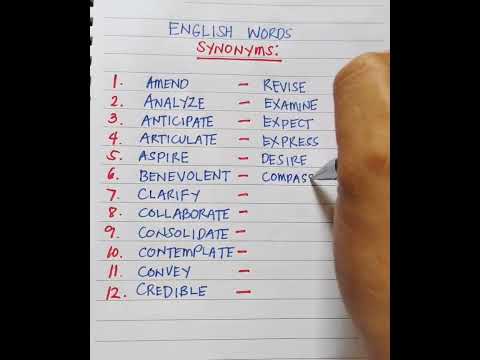 ENGLISH WORDS
SYNONYMS:
1. AMEND – REVISE
2. ANALYZE – EXAMINE
3. ANTICIPATE – EXPECT
4. ARTICULATE – EXPRESS
5. ASPIRE – DESIRE
6. BENEVOLENT – COMPASS
7. CLARIFY –
8. COLLABORATE –
9. CONSOLIDATE –
10. CONTEMPLATE –
11. CONVEY –
12. CREDIBLE –